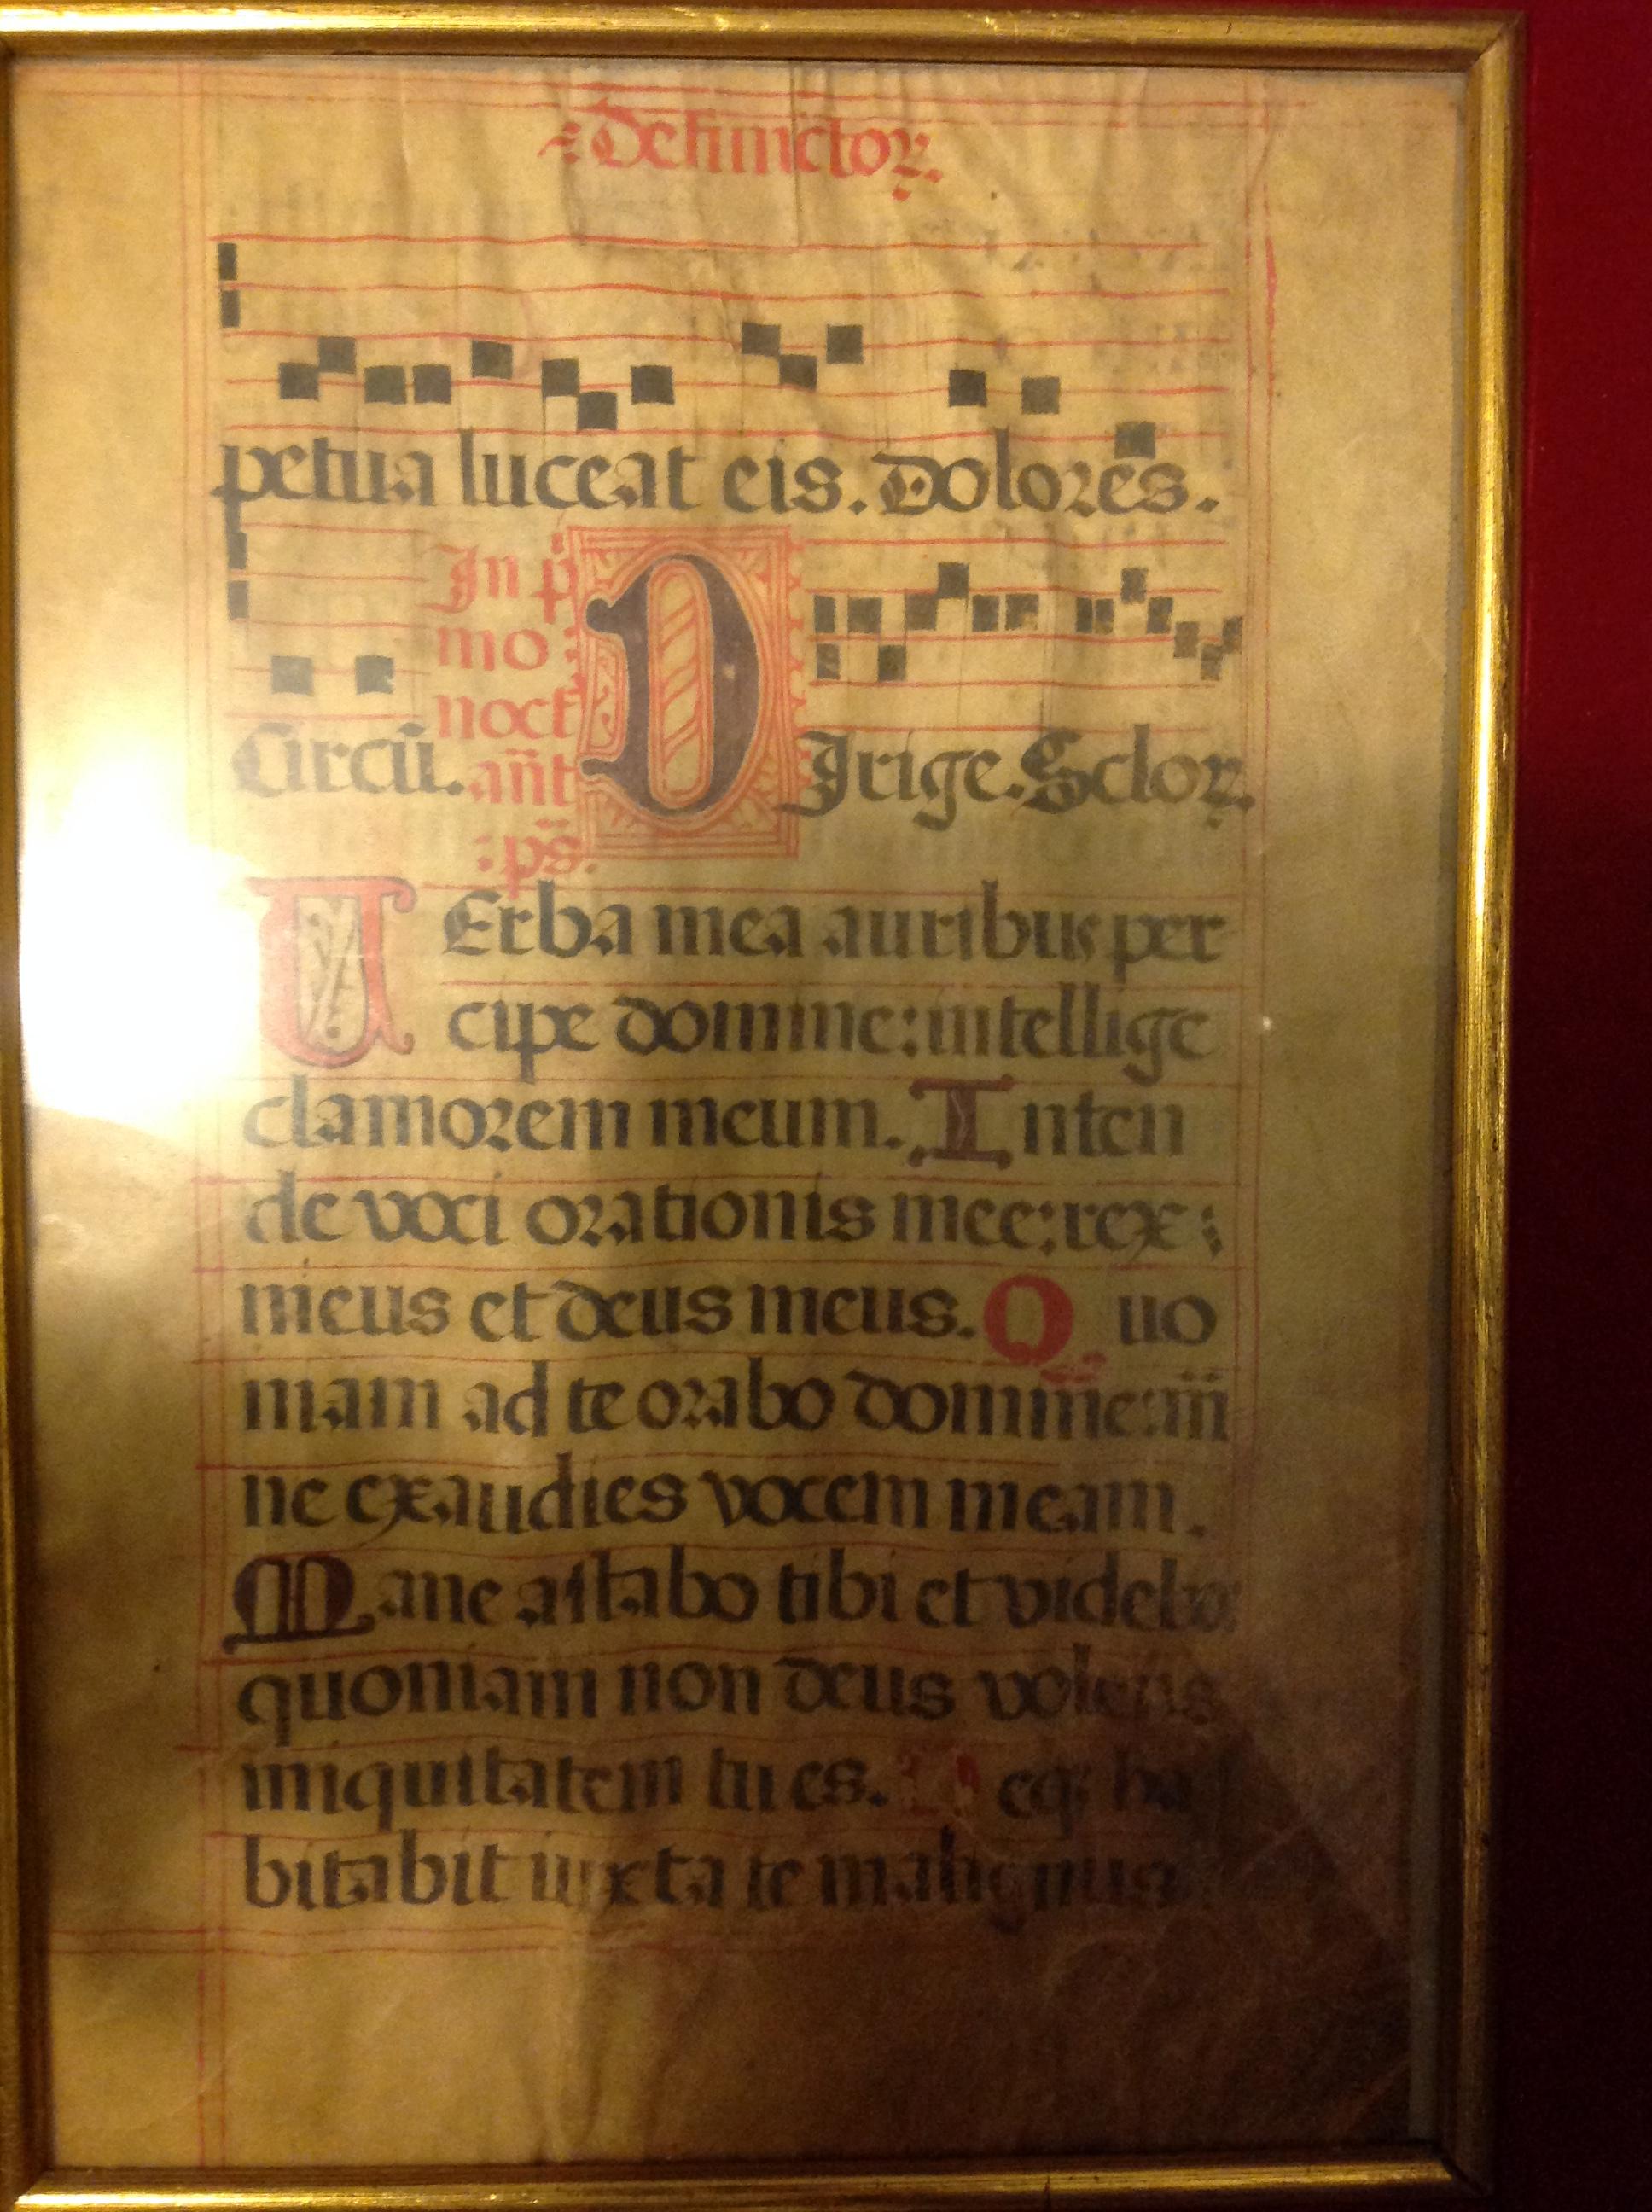 Defunctoꝝ.
petua luceat eis. Dolores.
In p̄
mo
noct
Circū. an̄t DIrige. Scloꝝ.
:ps̄.
UErba mea auribus per
cipe domine: intellige
clamorem meum. Inten
de voci orationis mee: rex:
meus et deus meus. Quo
niam ad te orabo domine: m̄
ne exaudies vocem meam.
Mane astabo tibi et videbo:
quoniam non deus volens
iniquitatem tu es. eqꝫ ha
bitabit iuxta te malignus